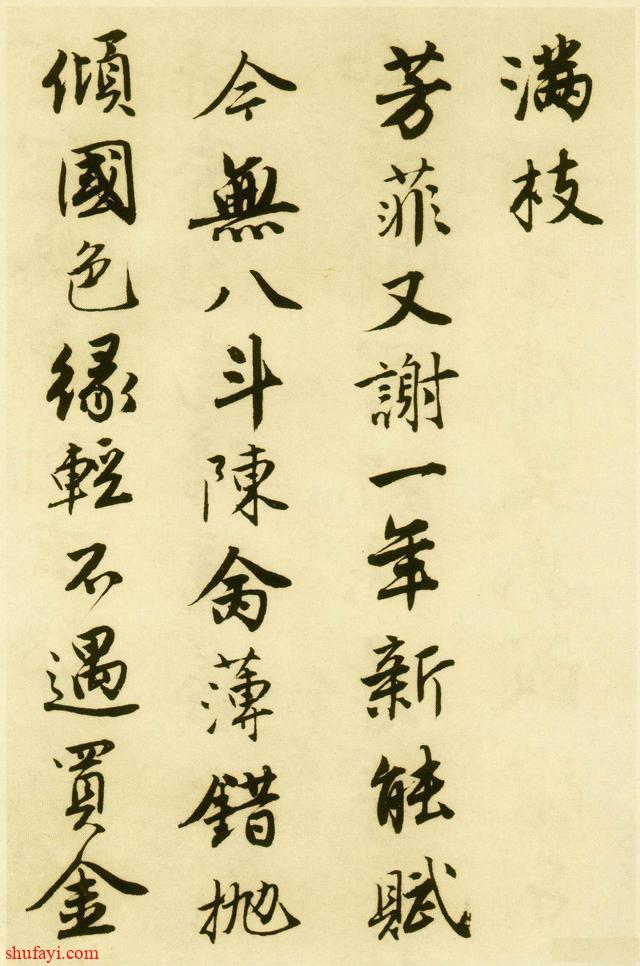 满枝
芳菲又謝一年新能賦
今無八斗陳禽薄錯抛
傾國色緣輕不遇買金
shufayi.com